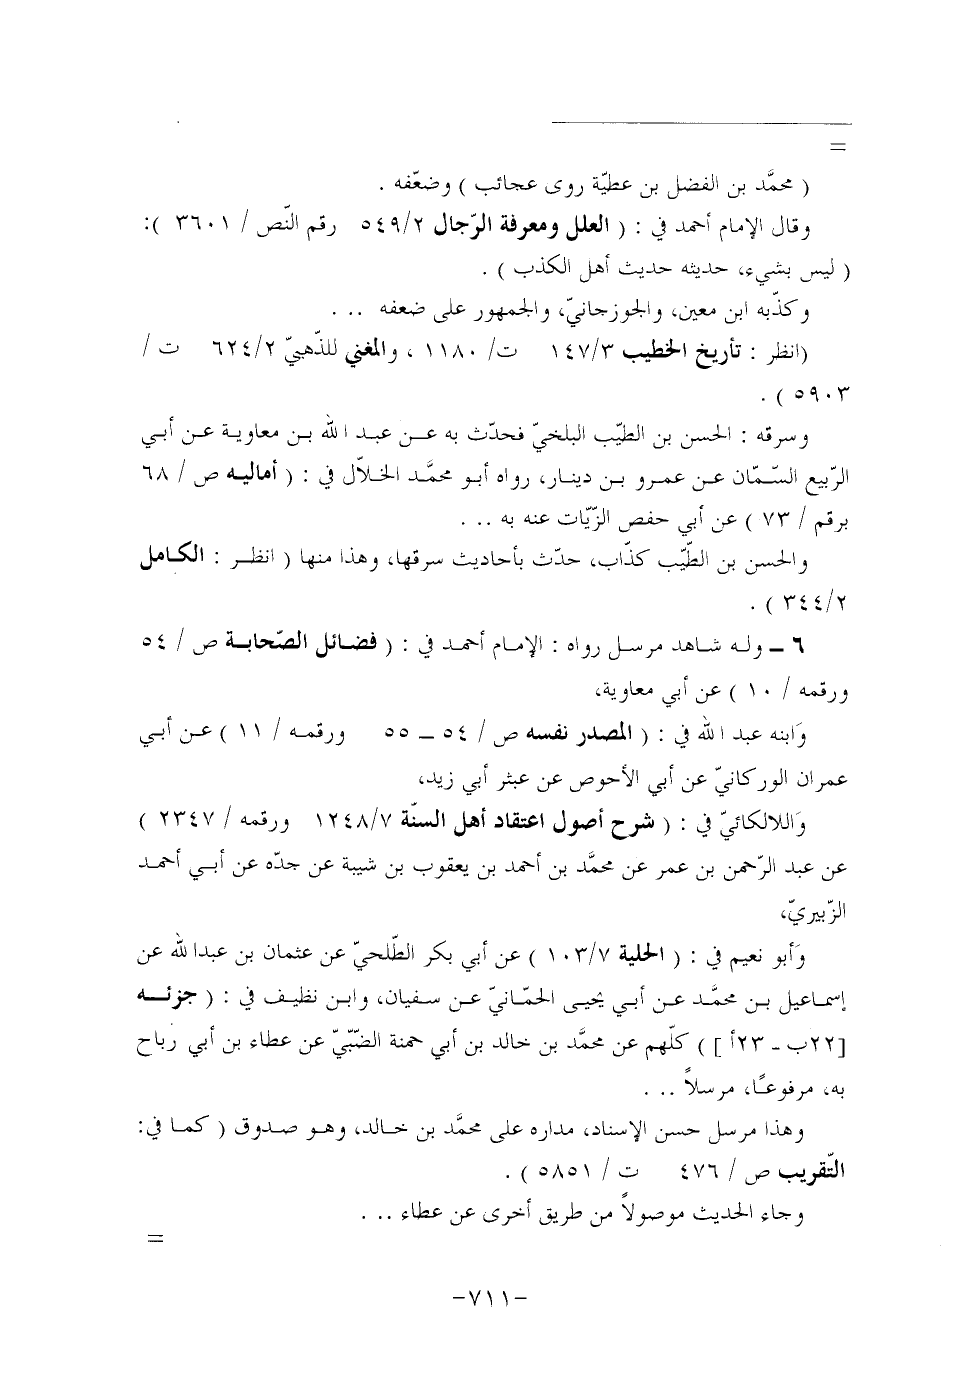 =
( محمَّد بن الفضل بن عطيّة روى عجائب ) وضعّفه .
وقال الإمام أحمد في : ( العلل ومعرفة الرّجال ٥٤٩/٢ رقم النّص / ٣٦٠١ ):
( ليس بشيء، حديثه حديث أهل الكذب ) .
وكذّبه ابن معين، والجوزجانيّ، والجمهور على ضعفه ...
(انظر : تأريخ الخطيب ١٤٧/٣ ت/ ١١٨٠ ، والمغني للذّهبيّ ٦٢٤/٢ ت /
٥٩٠٣ ) .
وسرقه : الحسن بن الطيّب البلخيّ فحدّث به عـن عبـد الله بـن معاويـة عـن أبـي
الرّبيع السّـمّان عـن عمـرو بـن دينـار، رواه أبـو محمَّـد الخـلاّل في : ( أماليـه ص / ٦٨
برقم / ٧٣ ) عن أبي حفص الزّيّات عنه به ...
والحسن بن الطّيّب كذّاب، حدّث بأحاديث سرقها، وهذا منها ( انظـر : الكـامل
٣٤٤/٢ ) .
٦ ــ ولـه شـاهد مرسـل رواه : الإمـام أحمـد في : ( فضـائل الصّحابـة ص / ٥٤
ورقمه / ١٠ ) عن أبي معاوية،
وَابنه عبد الله في : ( المصدر نفسه ص / ٥٤ ــ ٥٥ ورقمـه / ١١ ) عـن أبـي
عمران الوركانيّ عن أبي الأحوص عن عبثر أبي زيد،
وَاللالكائيّ في : ( شرح أصول اعتقاد أهل السنّة ١٢٤٨/٧ ورقمه / ٢٣٤٧ )
عن عبد الرّحمن بن عمر عن محمَّد بن أحمد بن يعقوب بن شيبة عن جدّه عن أبـي أحمـد
الزّبيريّ،
وَأبو نعيم في : ( الحلية ١٠٣/٧ ) عن أبي بكر الطّلحيّ عن عثمان بن عبدالله عن
إسمـاعيل بـن محمَّـد عـن أبـي يحيـى الحمّـانيّ عـن سـفيان، وابـن نظيـف في : ( جزئـه
[٢٢ب ـ ٢٣أ ] ) كلّهم عن محمَّد بن خالد بن أبي حمنة الضّبّيّ عن عطاء بن أبي رباح
به، مرفوعًـا، مرسلاً ...
وهذا مرسل حسن الإسناد، مداره على محمَّد بن خـالد، وهـو صـدوق ( كمـا في:
التّقريب ص / ٤٧٦ ت / ٥٨٥١ ) .
وجاء الحديث موصولاً من طريق أخرى عن عطاء ...
=
-٧١١-